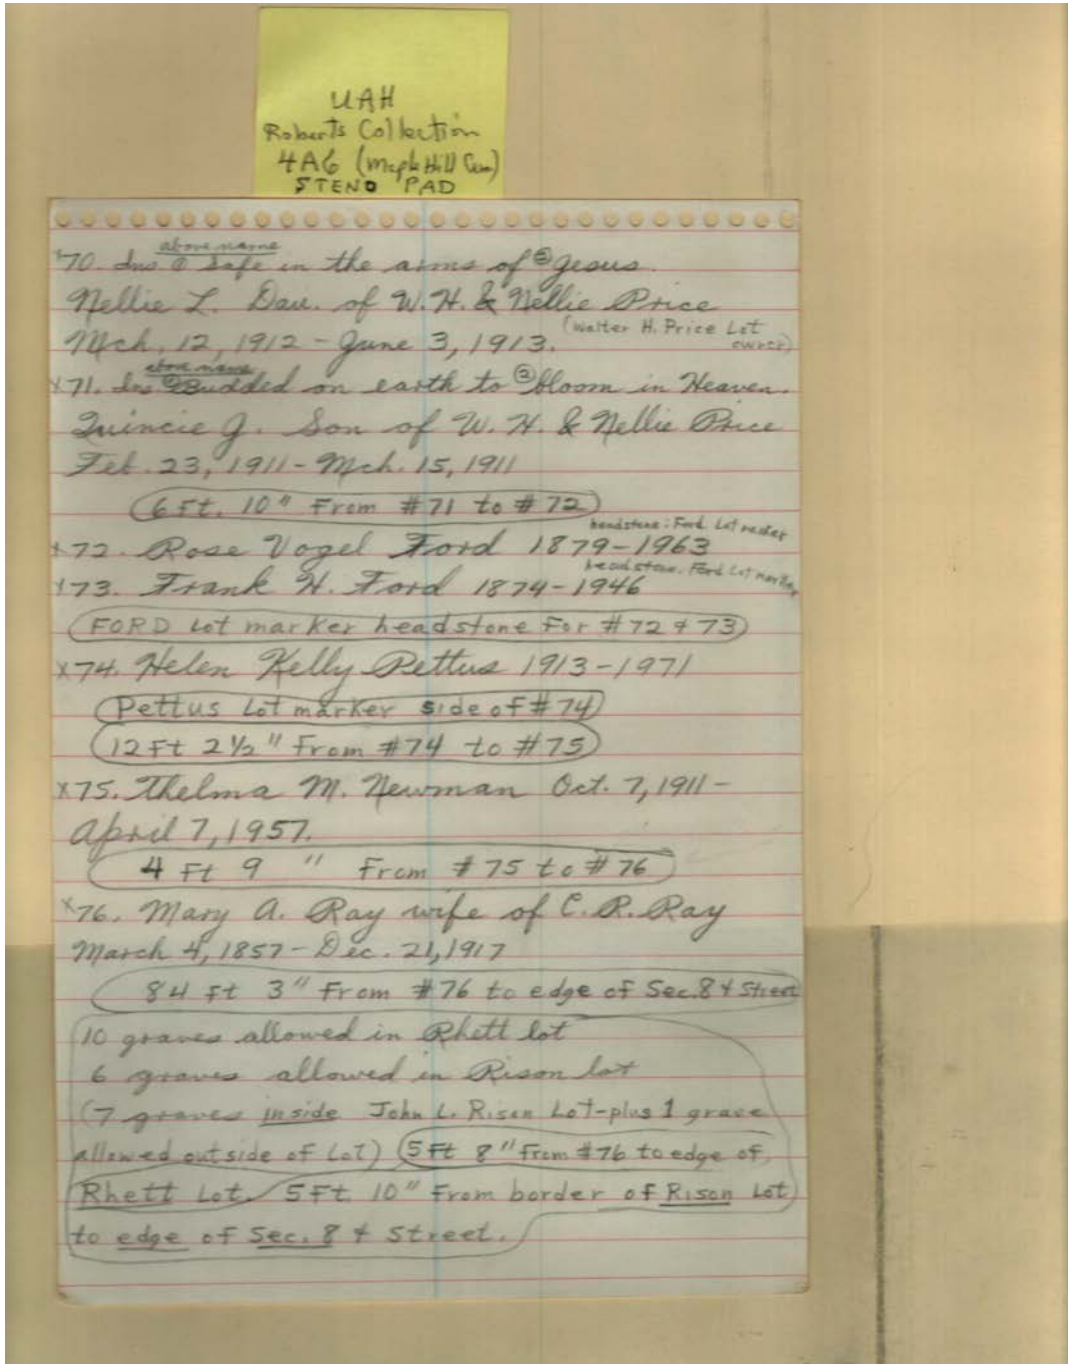 UAH
Roberts Collection
4A6 (Maple Hill Cem)
STENO PAD
above name
x70. Ins ① Safe in the arms of ② Jesus.
Nellie L. Dau. of W. H. & Nellie Price
(Walter H. Price Lot
Mch. 12, 1912 - June 3, 1913.
owner)
above name
x71. Ins ① Budded on earth to ② bloom in Heaven.
Quincie J. Son of W. H. & Nellie Price
Feb. 23, 1911 - Mch. 15, 1911
6 Ft. 10" From #71 to #72
headstone: Ford Lot marker
x72. Rose Vogel Ford 1879-1963
headstone. Ford Lot marker
x73. Frank H. Ford 1874-1946
FORD Lot marker headstone For #72 & 73
x74. Helen Kelly Pettus 1913-1971
Pettus Lot marker side of #74
12 Ft 2 1/2" From #74 to #75
x75. Thelma M. Newman Oct. 7, 1911-
April 7, 1957.
4 Ft 9 " From #75 to #76
x76. Mary A. Ray wife of C. R. Ray
March 4, 1857 - Dec. 21, 1917
84 Ft 3" From #76 to edge of Sec. 8 & Street
10 graves allowed in Rhett lot
6 graves allowed in Rison lot
(7 graves inside John L. Rison Lot-plus 1 grave
allowed outside of Lot) 5 Ft 8" From #76 to edge of
Rhett Lot. 5 Ft. 10" From border of Rison Lot
to edge of Sec. 8 & Street.